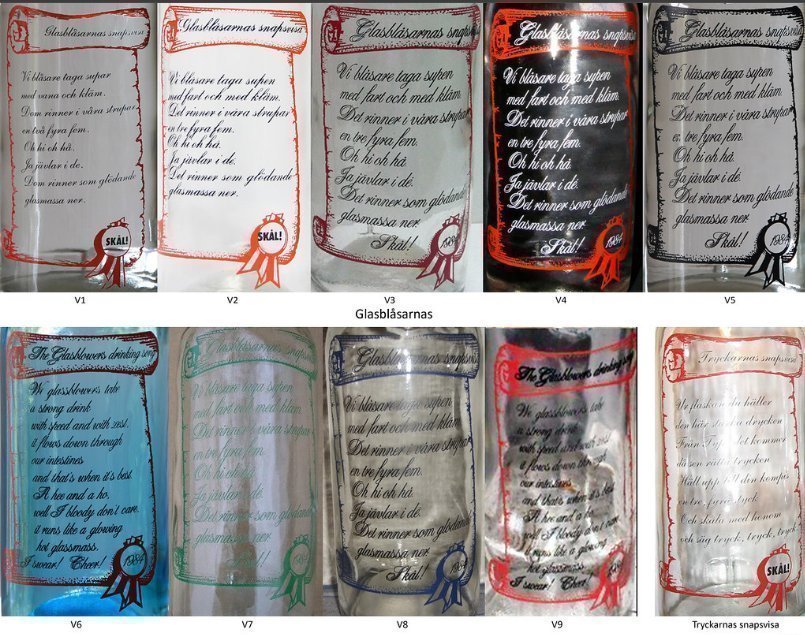 Glasblåsarnas snapsvisa
Vi blåsare taga supar
med vana och kläm.
Dom rinner i våra strupar
en två fyra fem.
Oh hi oh hå.
Ja jävlar i de.
Dom rinner som glödande
glasmassa ner.
SKÅL!
V1
Glasblåsarnas snapsvisa
Vi blåsare taga supen
med fart och med kläm.
Det rinner i våra strupar
en tre fyra fem.
Oh hi oh hå.
Ja jävlar i dé.
Det rinner som glödande
glasmassa ner.
SKÅL!
V2
Glasblåsarnas snapsvisa
Vi blåsare taga supen
med fart och med kläm.
Det rinner i våra strupar
en tre fyra fem.
Oh hi oh hå.
Ja jävlar i dé.
Det rinner som glödande
glasmassa ner.
Skål!
1984
V3
Glasblåsarnas snapsvisa
Vi blåsare taga supen
med fart och med kläm.
Det rinner i våra strupar
en tre fyra fem.
Oh hi oh hå.
Ja jävlar i dé.
Det rinner som glödande
glasmassa ner.
Skål!
1984
V4
Glasblåsarnas snapsvisa
Vi blåsare taga supen
med fart och med kläm.
Det rinner i våra strupar
en tre fyra fem.
Oh hi oh hå.
Ja jävlar i dé.
Det rinner som glödande
glasmassa ner.
Skål!
1984
V5
Glasblåsarnas
The Glasblowers drinking song
We glassblowers take
a strong drink
with speed and with zest.
it flows down through
our intestines
and that's when it's best.
A hee and a ho,
well I bloody don't care.
it runs like a glowing
hot glassmass.
I swear! Cheer!
1984
V6
Glasblåsarnas snapsvisa
Vi blåsare taga supen
med fart och med kläm.
Det rinner i våra strupar
en tre fyra fem.
Oh hi oh hå.
Ja jävlar i dé.
Det rinner som glödande
glasmassa ner.
Skål!
1984
V7
Glasblåsarnas snapsvisa
Vi blåsare taga supen
med fart och med kläm.
Det rinner i våra strupar
en tre fyra fem.
Oh hi oh hå.
Ja jävlar i dé.
Det rinner som glödande
glasmassa ner.
Skål!
1984
V8
The Glasblowers drinking song
We glassblowers take
a strong drink
with speed and with zest.
it flows down through
our intestines
and that's when it's best.
A hee and a ho,
well I bloody don't care.
it runs like a glowing
hot glassmass.
I swear! Cheer!
1984
V9
Tryckarnas snapsvisa
Ur flaskan du häller
den här starka drycken
Från det kommer
då sen trycken
Häll upp till din kompis
en tre fyra
Och skåla med honom
och säg tryck, tryck, tryck
SKÅL!
Tryckarnas snapsvisa